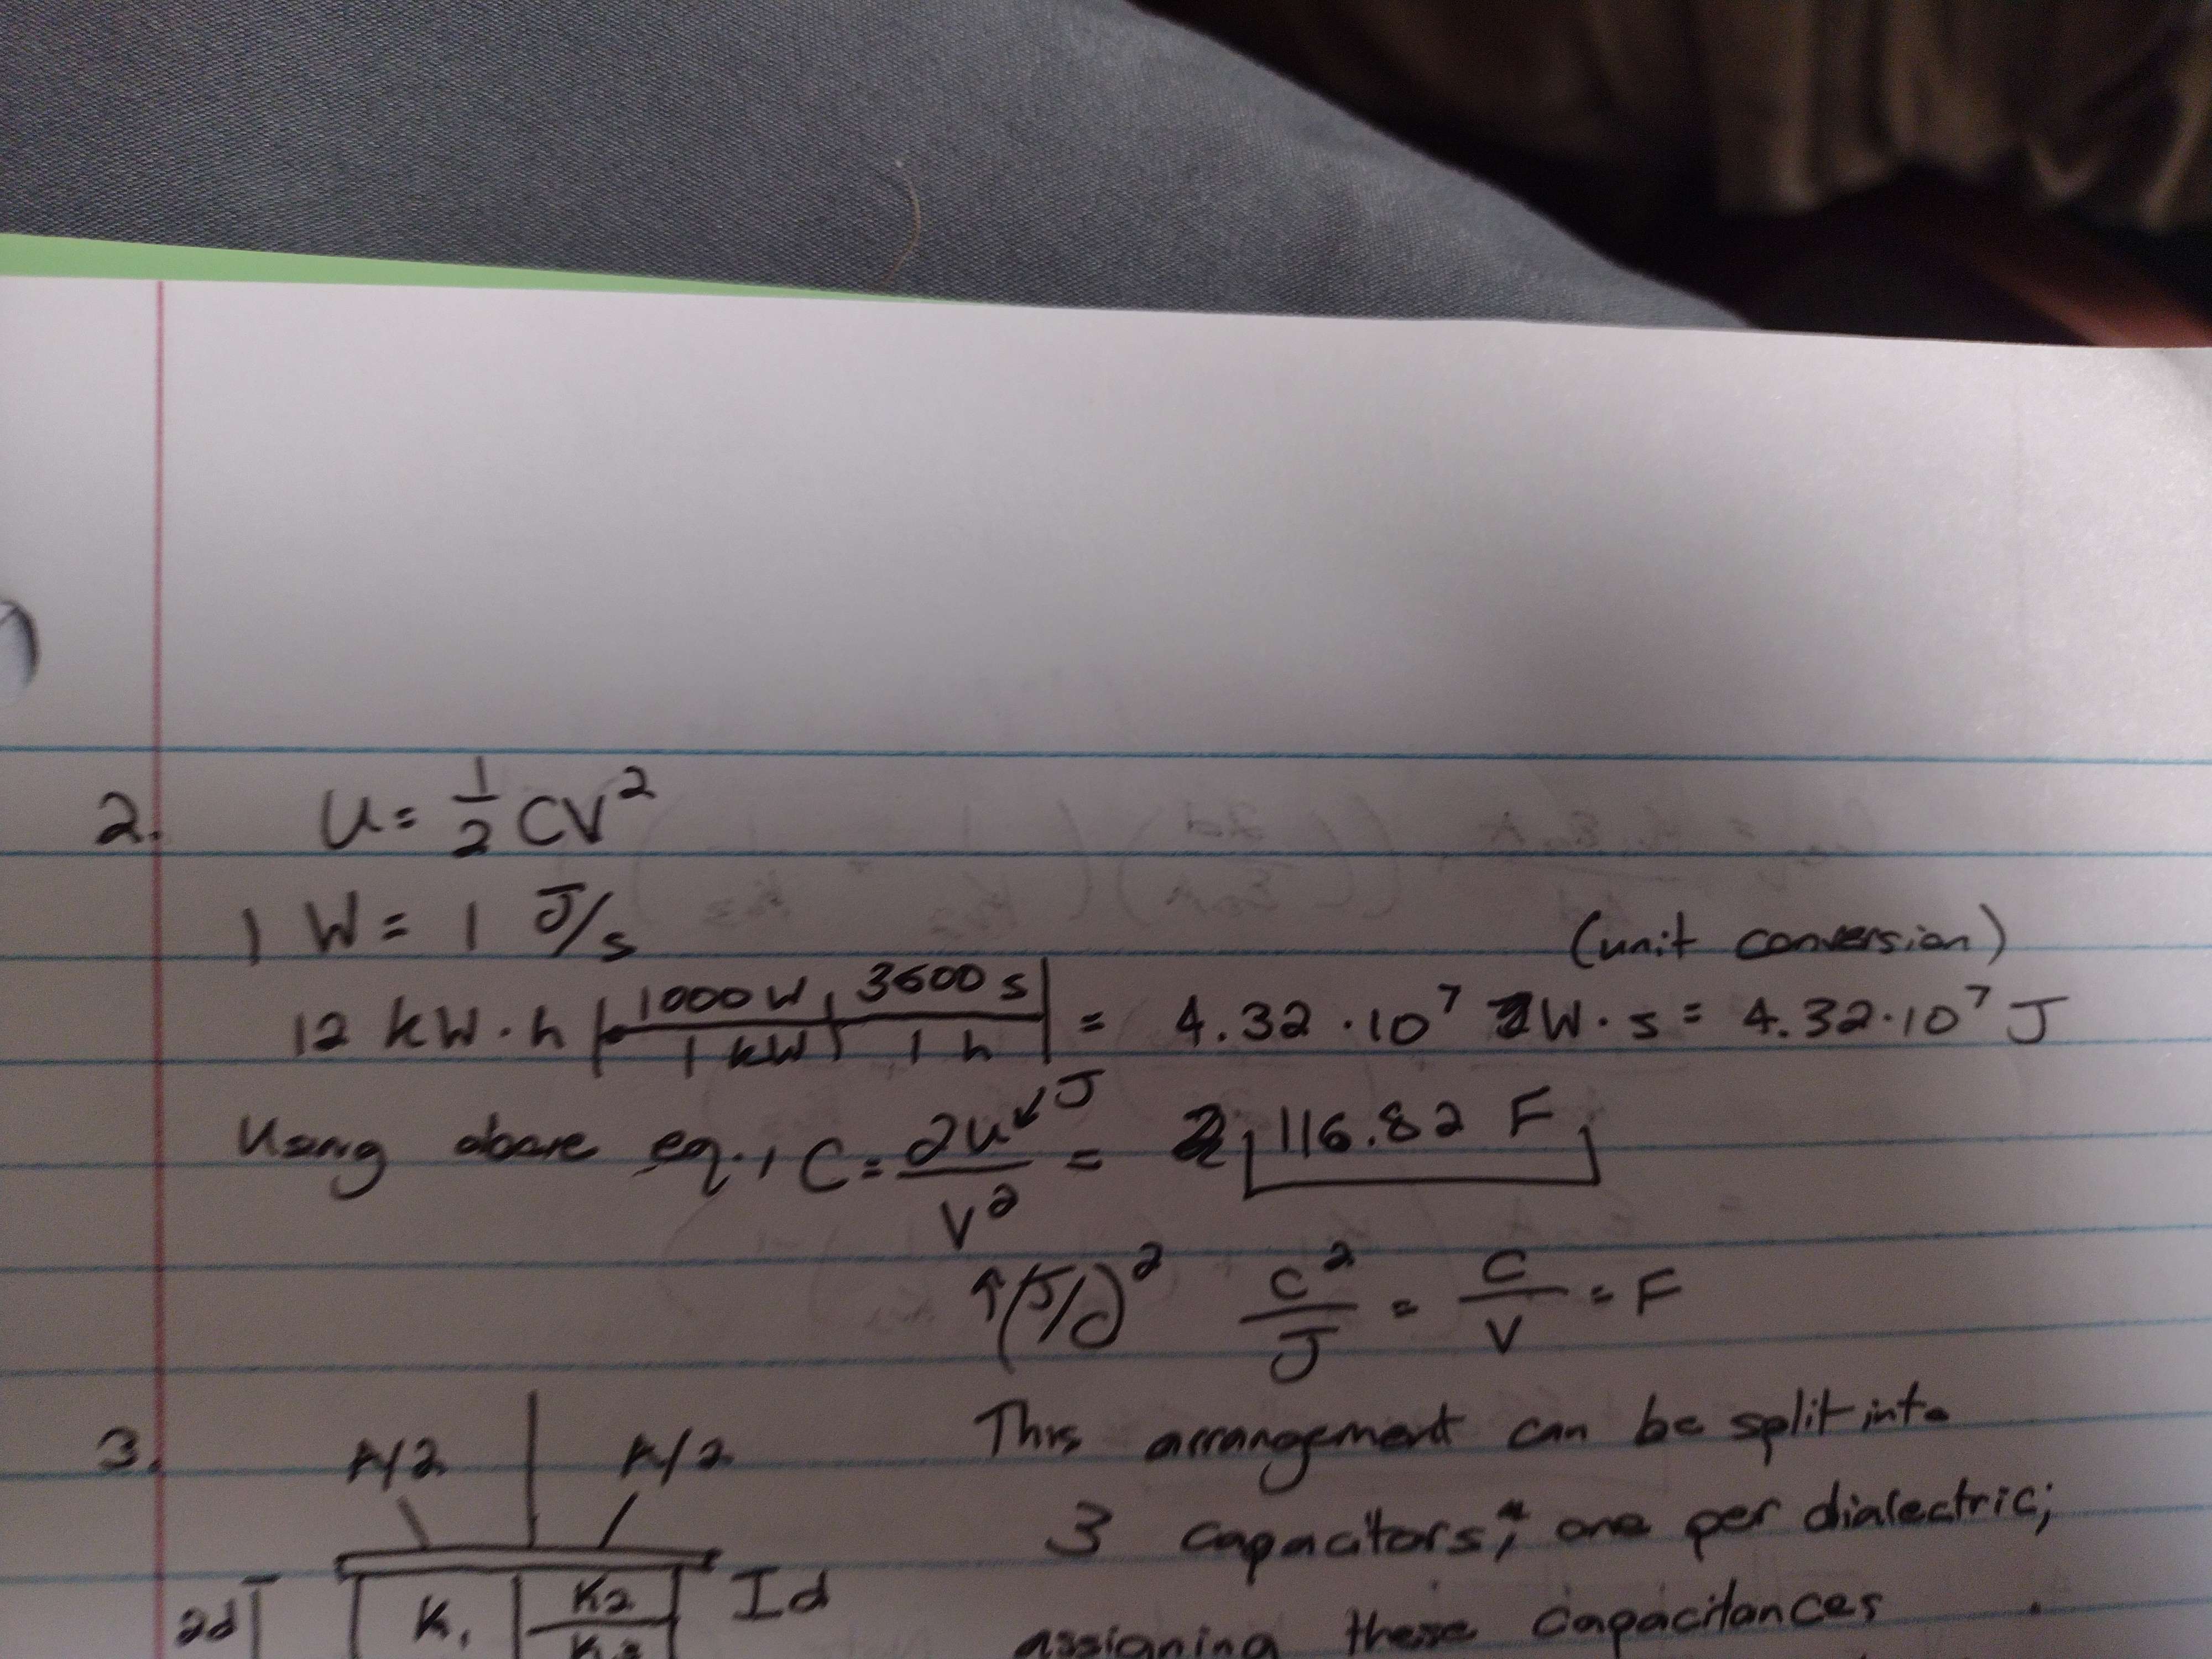 2. U = 1/2 CV²
1 W = 1 J/s
(unit conversion)
12 kW·h | 1000 W / 1 kW | 3600 s / 1 h | = 4.32·10⁷ W·s = 4.32·10⁷ J
Using above eq., C = 2U ↙J / V² = 116.82 F
↑(J/C)² C²/J = C/V = F
3. A/2 A/2 This arrangement can be split into
3 capacitors; one per dialectric;
2d K₁ K₂ I d
assigning these capacitances